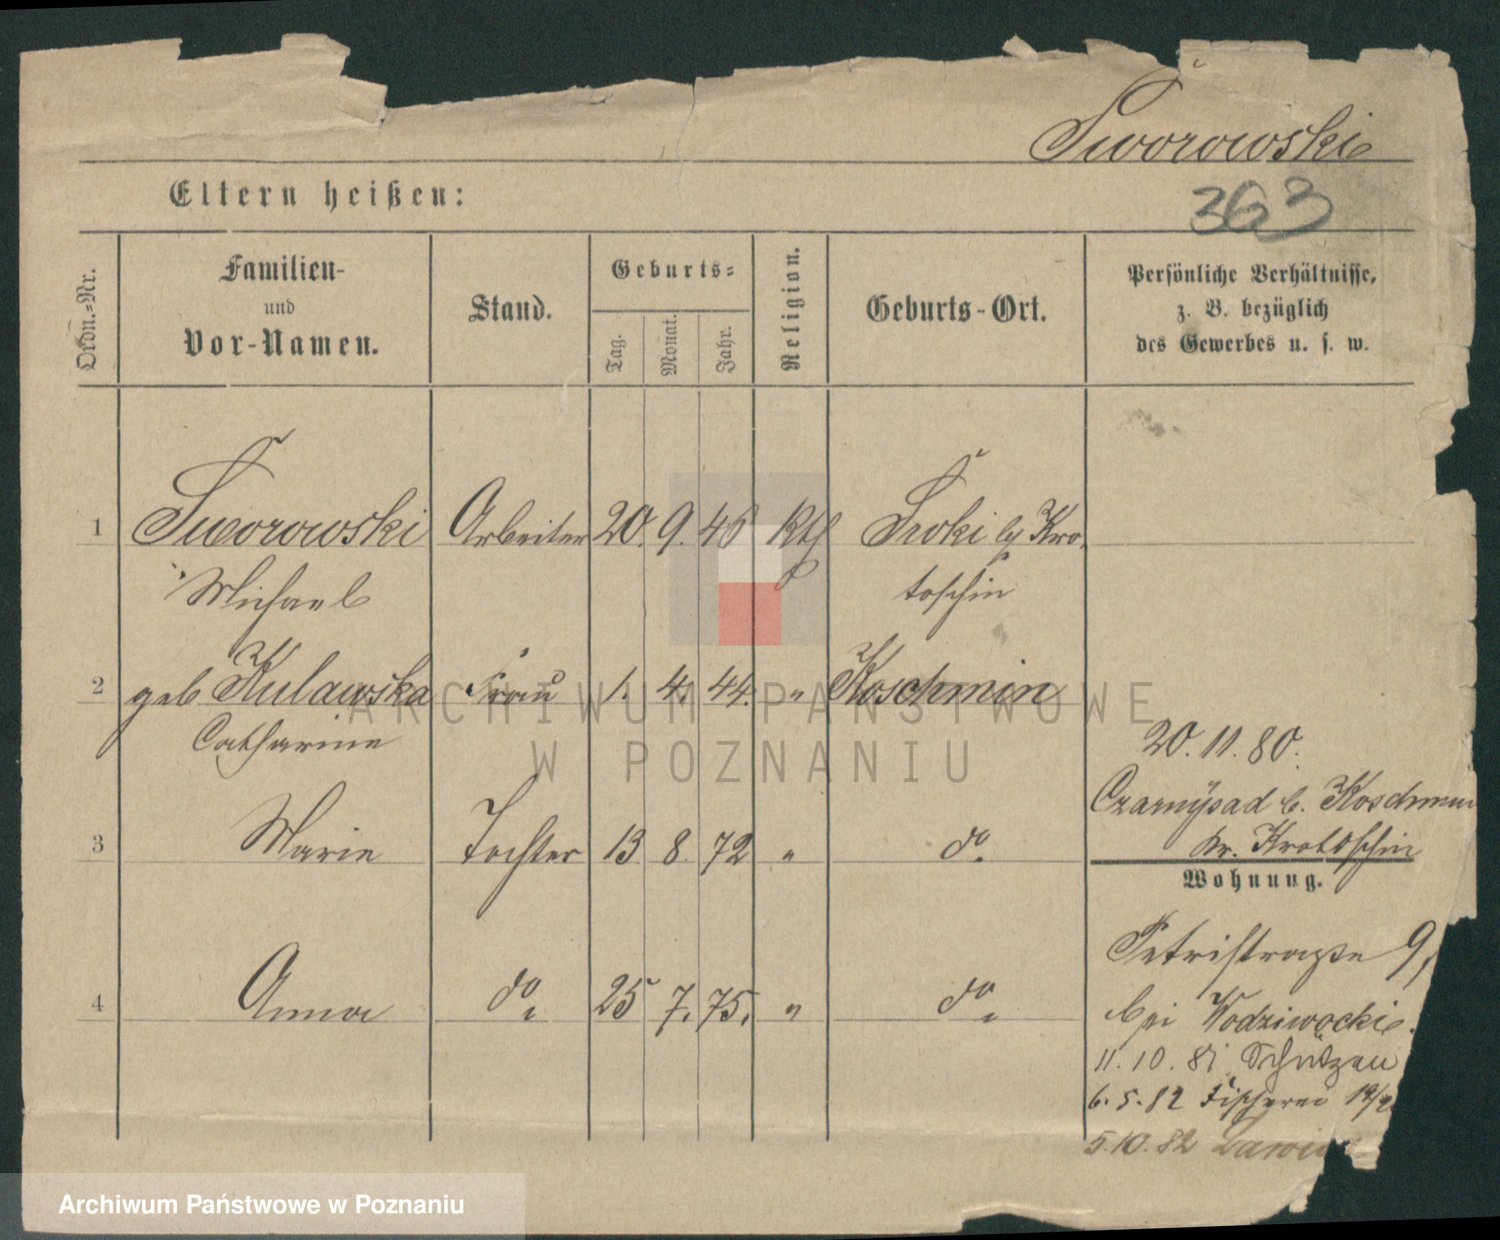 Sworowski
Eltern heißen:
363
Ordn.-Nr.
Familien-
und
Vor-Namen.
Stand.
Geburts-
Tag.
Monat.
Jahr.
Religion.
Geburts-Ort.
Persönliche Verhältnisse,
z. B. bezüglich
des Gewerbes u. s. w.
1 Sworowski Arbeiter 20. 9. 45 Kth Kro
Michael toschin
2 geb Kulawska Frau 1. 4. 44. " Koschmin
Catharine
20. 11. 80.
Czarnysad b. Koschmin
3 Marie Tochter 13 8. 72 " do.
Kr. Krotoschin
Wohnung.
Petristraße 9,
4 Anna do. 25 7. 75. " do.
bei Wodziwocki.
11. 10. 81 Schützen
6. 5. 82 Fischerei
5. 10. 82
ARCHIWUM PAŃSTWOWE
W POZNANIU
Archiwum Państwowe w Poznaniu